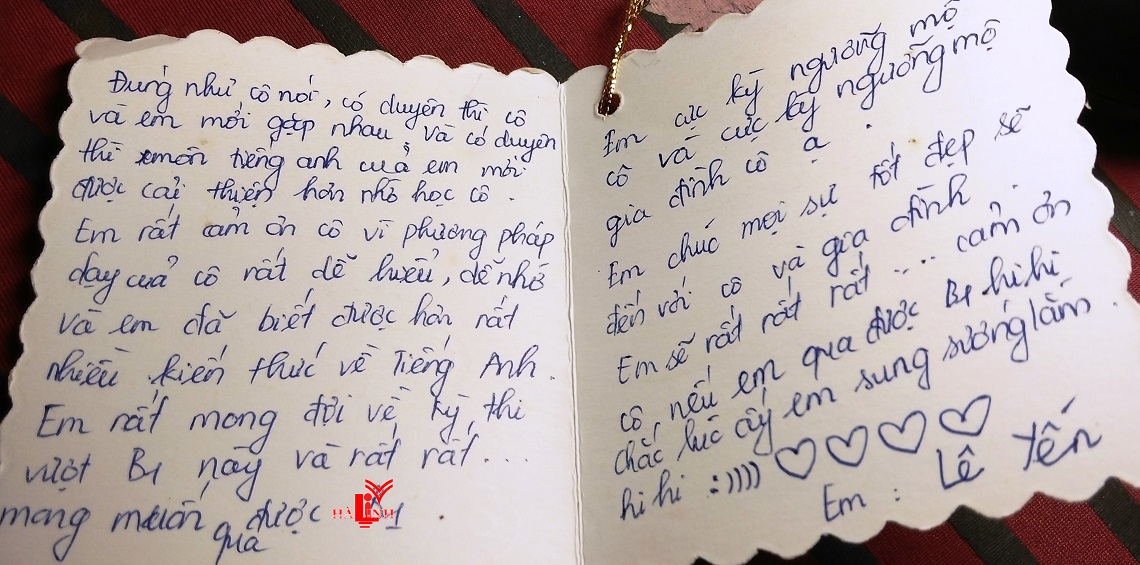 Đúng như cô nói, có duyên thì cô
và em mới gặp nhau và có duyên
thì môn tiếng anh của em mới
được cải thiện hơn nhờ học cô.
Em rất cảm ơn cô vì phương pháp
dạy của cô rất dễ hiểu, dễ nhớ
và em đã biết được hơn rất
nhiều kiến thức về Tiếng Anh.
Em rất mong đợi về kỳ thi
vượt B1 này và rất rất....
mong muốn qua được 1.
HÀ LINH
Em cực kỳ ngưỡng mộ
cô và cực kỳ ngưỡng mộ
gia đình cô ạ.
Em chúc mọi sự tốt đẹp sẽ
đến với cô và gia đình.
Em sẽ rất rất rất .... cảm ơn
cô nếu em qua được B1 hi hi
chắc lúc ấy em sung sướng lắm.
hi hi :)))) ♡♡♡♡
Em: Lê Yến